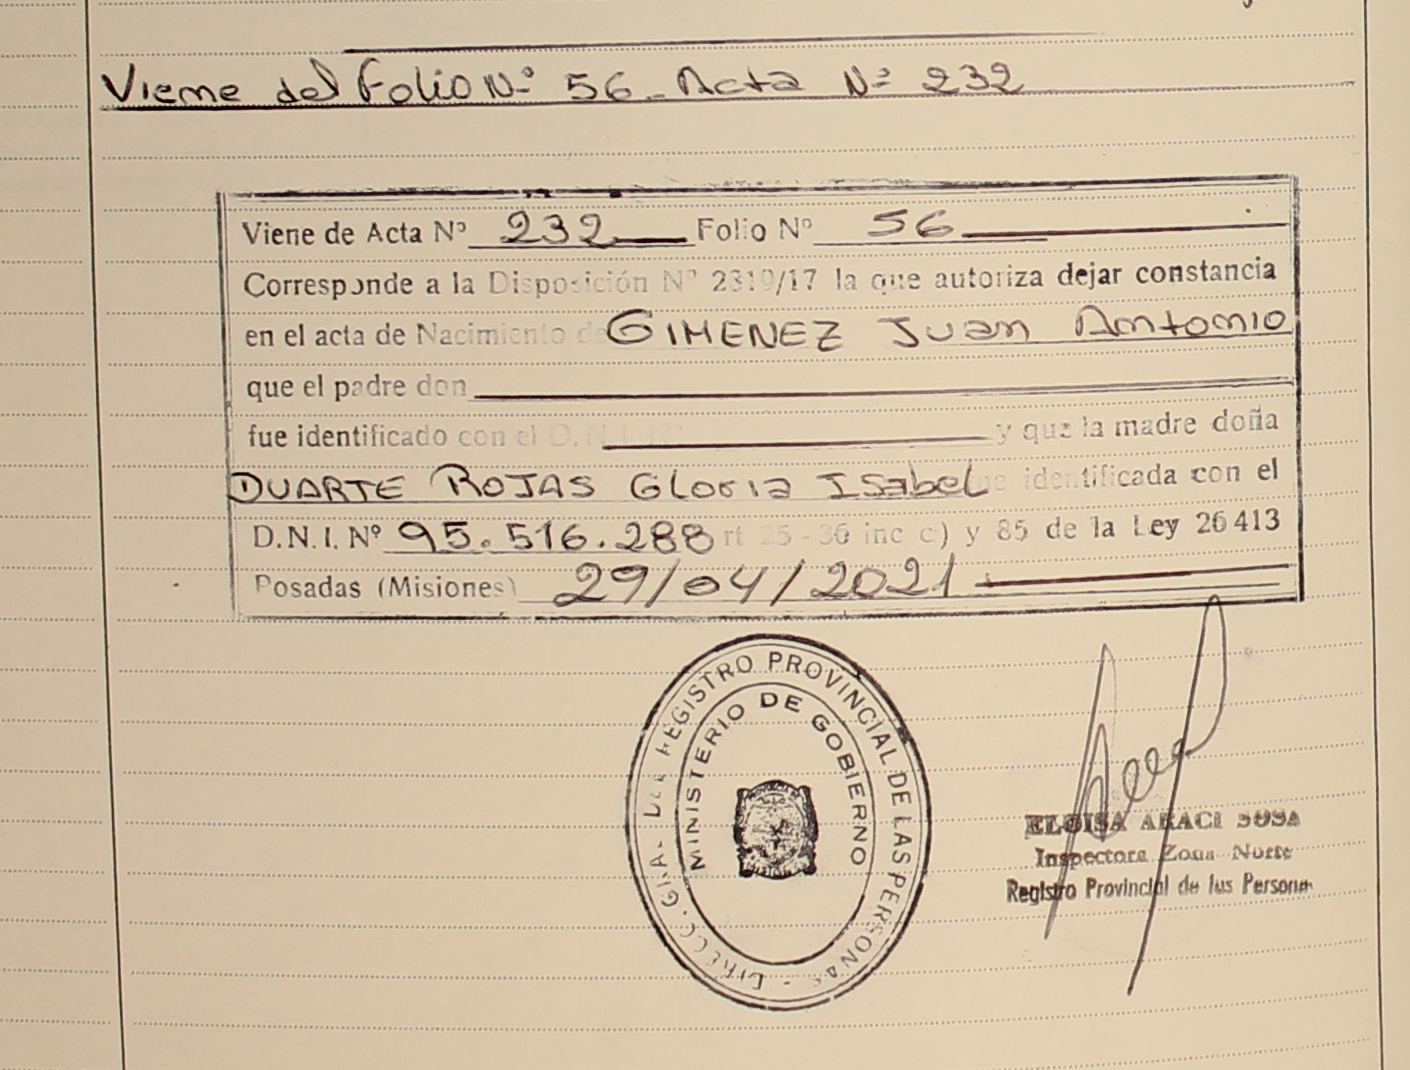 Viene del Folio Nº 56 - Acta Nº 232
Viene de Acta Nº 232 Folio Nº 56
Corresponde a la Disposición Nº 2319/17 la que autoriza dejar constancia
en el acta de Nacimiento de GIMENEZ Juan Antonio
que el padre don
fue identificado con el D.N.I. Nº y que la madre doña
DUARTE ROJAS Gloria Isabel fue identificada con el
D.N.I. Nº 95.516.288 rt 25 - 36 inc c) y 85 de la Ley 26413
Posadas (Misiones) 29/04/2021
DIRECC. GRAL DEL REGISTRO PROVINCIAL DE LAS PERSONAS -
MINISTERIO DE GOBIERNO
ELOISA ARACI SOSA
Inspectora Zona Norte
Registro Provincial de las Personas